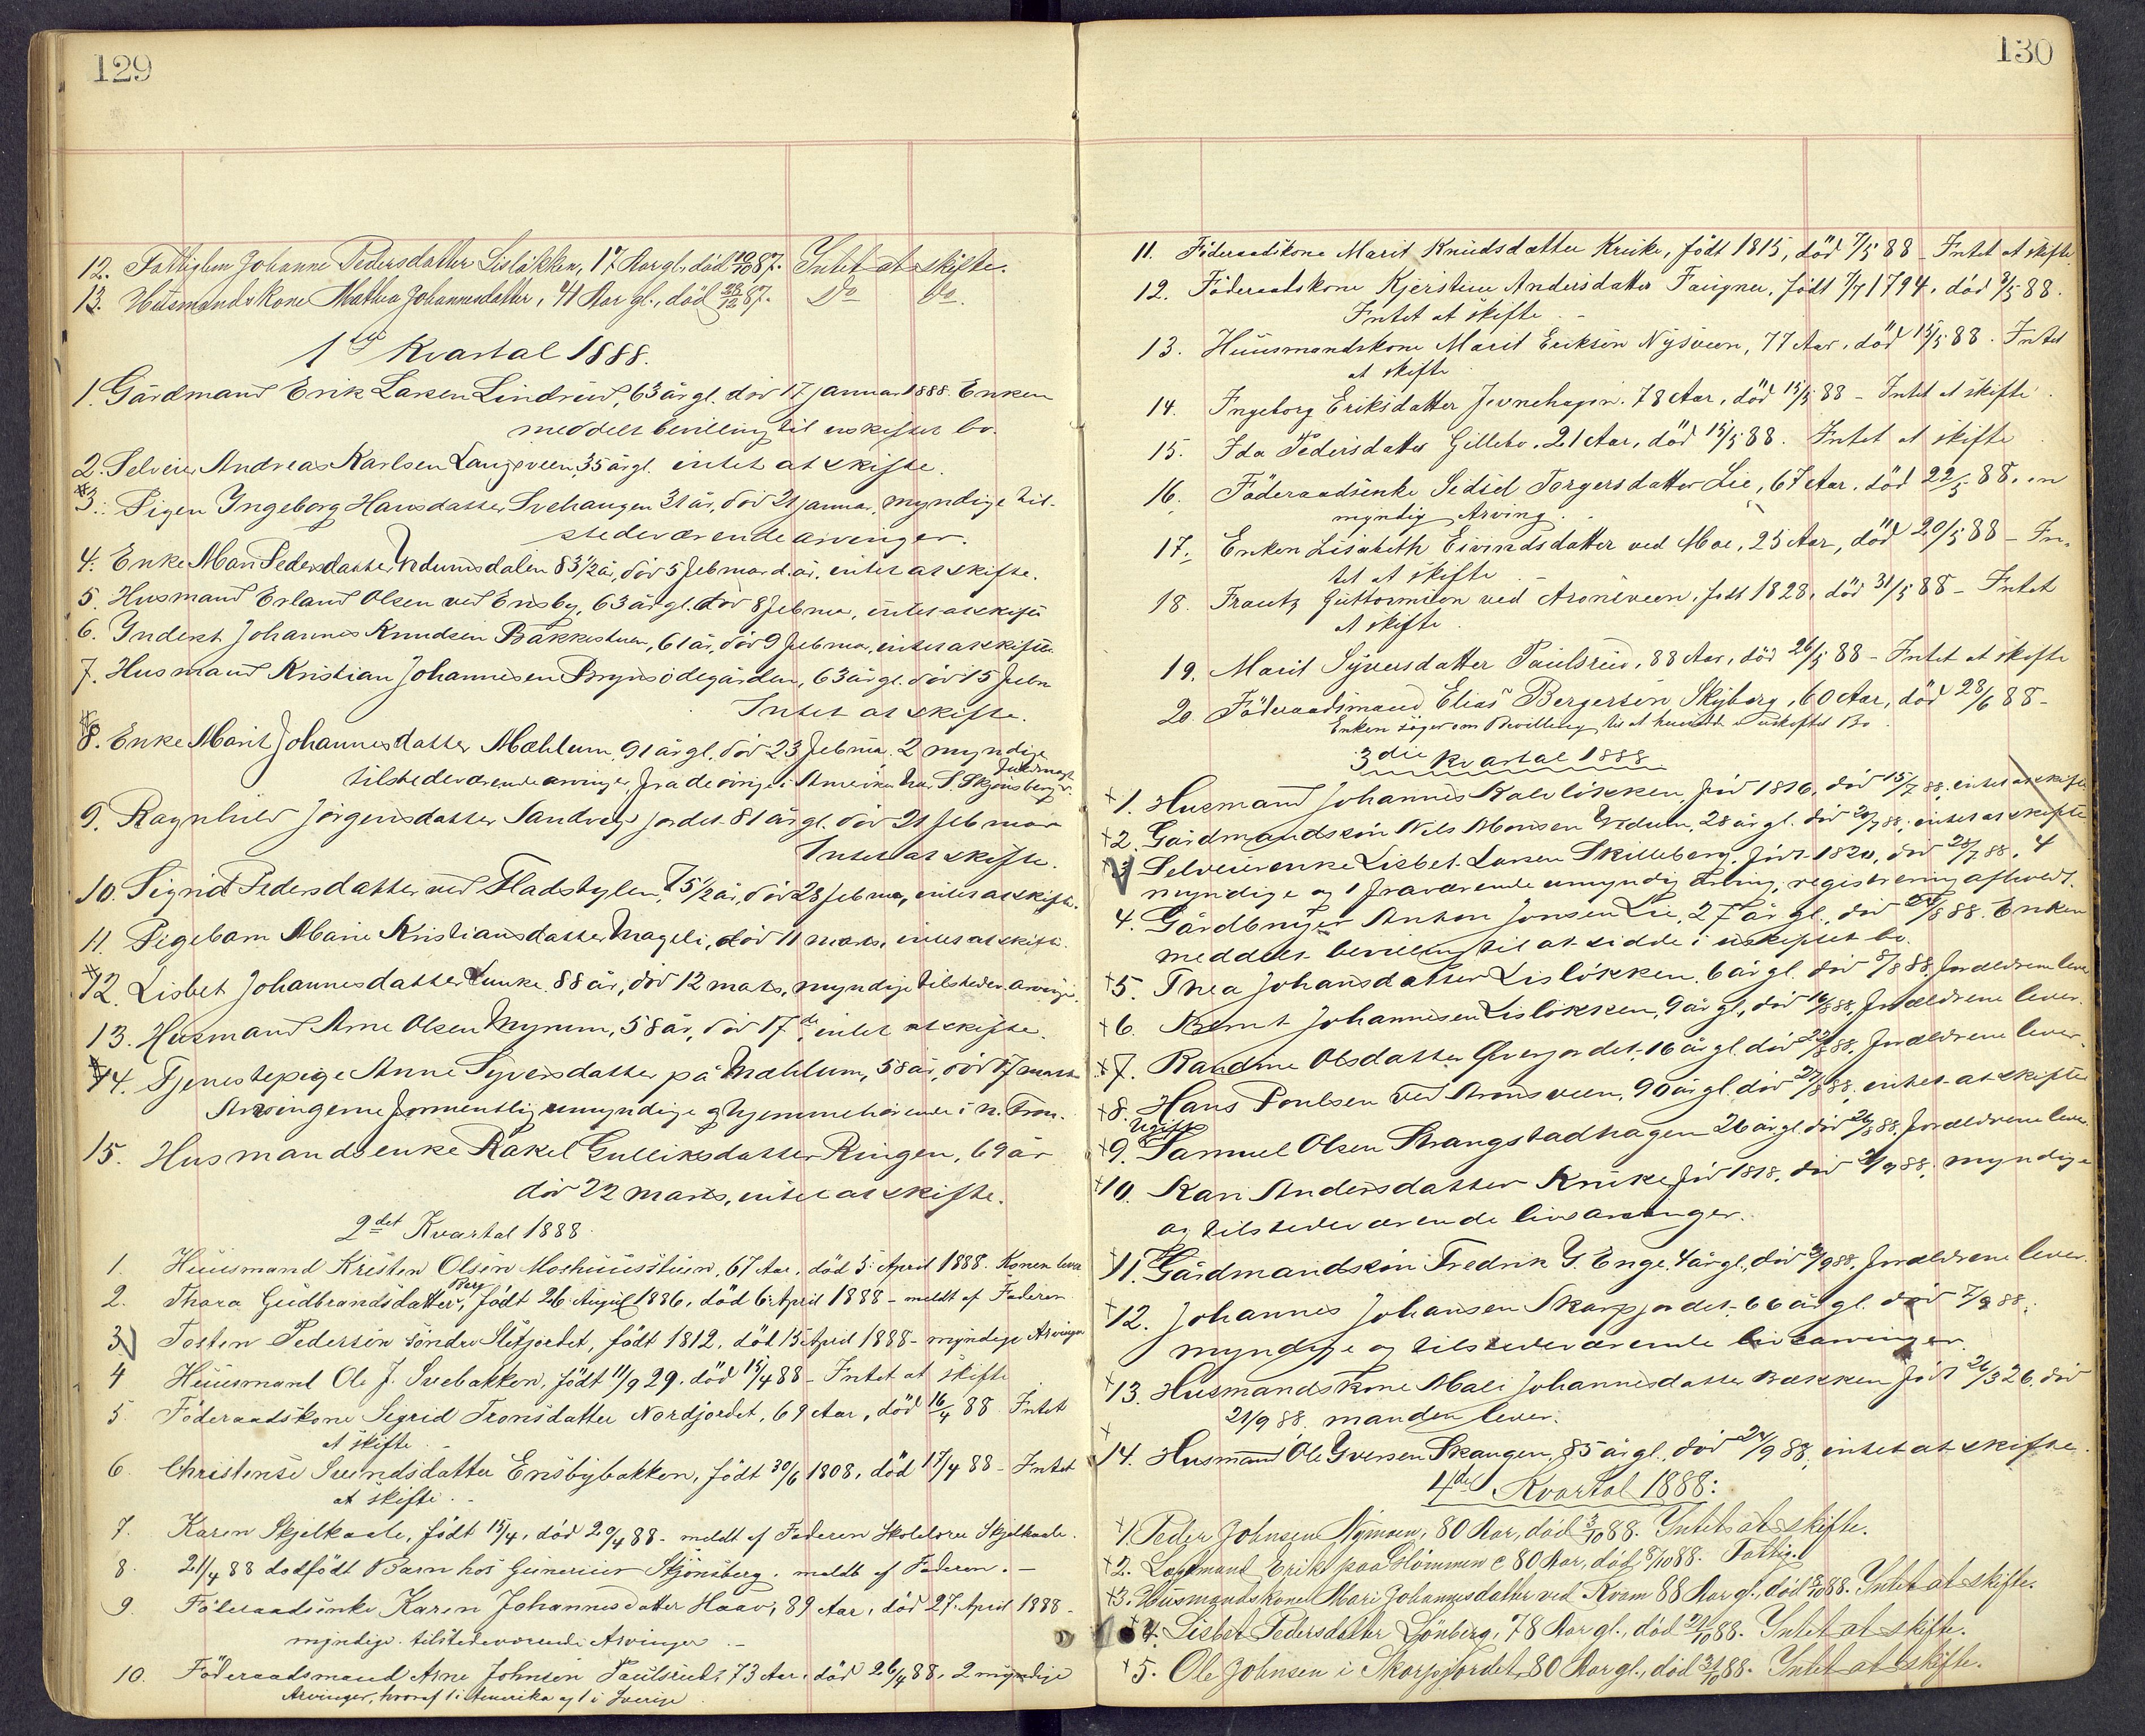 129
12. Fattiglem Johanne Pedersdatter Lisløkken, 17 Aar gl., død 10/10 87. Intet at skifte.
13. Husmandskone Mathea Johannesdatter, 41 Aar gl., død 28/12 87. Do Do.
1ste Kvartal 1888.
1. Gårdmand Erik Larsen Lindrud, 63 år gl. død 17 januar 1888. Enken
meddelt bevilling til uskiftet bo.
2. Selveier Andreas Karlsen Langsveen, 35 år gl. intet at skifte.
3. Pigen Ingeborg Hansdatter Svehaugen 31 år, død 21 januar, myndige til-
stedeværende arvinger.
4. Enke Mari Pedersdatter Vedumsdalen 83 1/2 år, død 5 februar d. år. intet at skifte.
5. Husmand Erland Olsen ved Ensby, 63 år gl. død 8 februar, intet at skifte
6. Inderst Johannes Knudsen Bakkestuen, 61 år, død 9 februar, intet at skifte.
7. Husmand Kristian Johannesen Brynsødegården, 63 år gl. død 15 febr
Intet at skifte.
8. Enke Marit Johannesdatter Mæhlum, 91 år gl. død 23 februar. 2 myndige
tilstedeværende arvinger, fra de øvrige i Amerika har S. Skjønsberg fuldmagt.
9. Ragnhild Jørgensdatter Sandvigsjordet 81 år gl. død 21 februar
Intet at skifte.
10. Sigrid Pedersdatter ved Fladstylen, 75 1/2 år, død 28 februar, intet at skifte.
11. Pigebarn Marie Kristiansdatter Mageli, død 11 marts, intet at skifte.
12. Lisbet Johannesdatter Lunke 88 år, død 12 marts, myndige tilstedev. arvinge.
13. Husmand Arne Olsen Myrum, 58 år, død 17de, intet at skifte.
14. Tjenestepige Anne Syversdatter på Mæhlum, 58 år, død 17 marts
Arvingerne formentlig umyndige og hjemmehørende i n. Fron.
15. Husmandsenke Rakel Gulliksdatter Ringen, 69 år
død 22 marts, intet at skifte.
2det Kvartal 1888.
1. Huusmand Kristen Olsen Moshuusstuen, 67 Aar, død 5 April 1888. Konen lever
2. Thora Gudbrandsdatter Berg, født 26 August 1886, død 6 April 1888 - meldt af Faderen
3. Tosten Pedersen søndre Sletjordet, født 1812, død 15 April 1888 - myndige Arvinger
4 Huusmand Ole J. Svebakken, født 11/9 29. død 15/4 88 - Intet at skifte
5 Föderaadskone Sigrid Tronsdatter Nordjordet, 69 Aar, død 16/4 88. Intet
at skifte. -
6. Christense Svendsdatter Ensbybakken, født 30/6 1808, død 17/4 88 - Intet
at skifte. -
7. Karen Skjelkaale, født 15/4, død 20/4 88 - meldt af Faderen Skolelærer Skjelkaale.
8. 21/4 88 dødfødt Barn hos Skjønsberg. meldt af Faderen. -
9. Föderaadsenke Karen Johannesdatter Haav, 89 Aar, død 27 April 1888 -
myndige tilstedeværende Arvinger -
10. Föderaadsmand Arne Johnsen Paulsrud, 73 Aar. død 26/4 88, 2 myndige
Arvinger, hvoraf 1 i Amerika og 1 i Sverige
130
11. Föderaadskone Marit Knudsdatter Kruke, født 1815, død 7/5 88 - Intet at skifte
12. Föderaadskone Kjerstine Andersdatter Faugner, født 7/7 1794, død 9/5 88.
Intet at skifte. -
13. Huusmandskone Marit Eriksen Nysveen, 77 Aar, død 15/5 88. Intet
at skifte
14. Ingeborg Eriksdatter Jevnehagen. 78 Aar, død 15/5 88 - Intet at skifte.
15. Ida Pedersdatter Gillebo, 21 Aar, død 15/5 88. Intet at skifte
16. Föderaadsenke Sidsel Torgersdatter Lie, 67 Aar. død 22/5 88. en
myndig Arving.
17. Enken Lisabeth Eivindsdatter ved Moe, 25 Aar, død 20/5 88 - In-
tet at skifte. -
18. Frantz Guttormsen ved Aronsveen, født 1828, død 31/5 88 - Intet
at skifte.
19. Marit Syversdatter Paulsrud, 88 Aar, død 26/5 88 - Intet at skifte
20. Föderaadsmand Elias Bergersen Skyberg, 60 Aar, død 28/6 88 -
Enken søger om Bevilling til at hensidde i uskiftet Bo.
3die kvartal 1888
1. Husmand Johannes Kaleløkken født 1816, død 15/7 88, intet at skifte
2. Gårdmandssøn Nils Monsen Vedum, 28 år gl. død 20/7 88, intet at skifte
3. Selveierenke Lisbet Larsen Skilleberg. født 1820, død 28/7 88, 4
myndige og 1 fraværende umyndig arving, registrering afholdt.
4. Gårdbruger Anton Jonsen Lie, 27 år gl., død 24/8 88. Enken
meddelt bevilling til at sidde i uskiftet bo.
5. Thea Johansdatter Lisløkken. 6 år gl. død 8/8 88, forældrene lever
6. Bernt Johannesen Lisløkken, 9 år gl., død 16/8 88, forældrene lever.
7. Randine Olsdatter Øverjordet, 16 år gl. død 22/8 88. forældrene lever.
8. Hans Poulsen ved Aronsveen, 90 år gl. død 27/8 88, intet at skifte
Ugift
9. Samuel Olsen Strangstadhagen 26 år gl. død 26/8 88. forældrene lever.
10. Kari Andersdatter Kruke, født 1818. død 2/9 88, myndige
og tilstedeværende livsarvinger.
11. Gårdmandssøn Fredrik G. Enge, 4 år gl., død 3/9 88, forældrene lever.
12. Johannes Johansen Skarpjordet, 66 år gl. død 7/9 88.
myndige og tilstedeværende livsarvinger.
13. Husmandskone Mali Johannesdatter Bækken født 26/3 26, død
21/9 88, manden lever.
14. Husmand Ole Iversen Skaugen, 85 år gl., død 24/9 88, intet at skifte.
4de Kvartal 1888:
1. Peder Johnsen Nymoen, 80 Aar, død 3/10 88. Intet at skifte.
2. Erik paa Glømmen c 80 Aar, død 8/10 88. Fattig.
3. Husmandskone Mari Johannesdatter ved Kvam 88 Aar gl., død 88. Intet at skifte.
4. Lisbet Pedersdatter Lønberg, 78 Aar gl., død 21/10 88. Intet at skifte.
5. Ole Johnsen i Skarpjordet, 80 Aar gl., død 31/10 88. Intet at skifte.